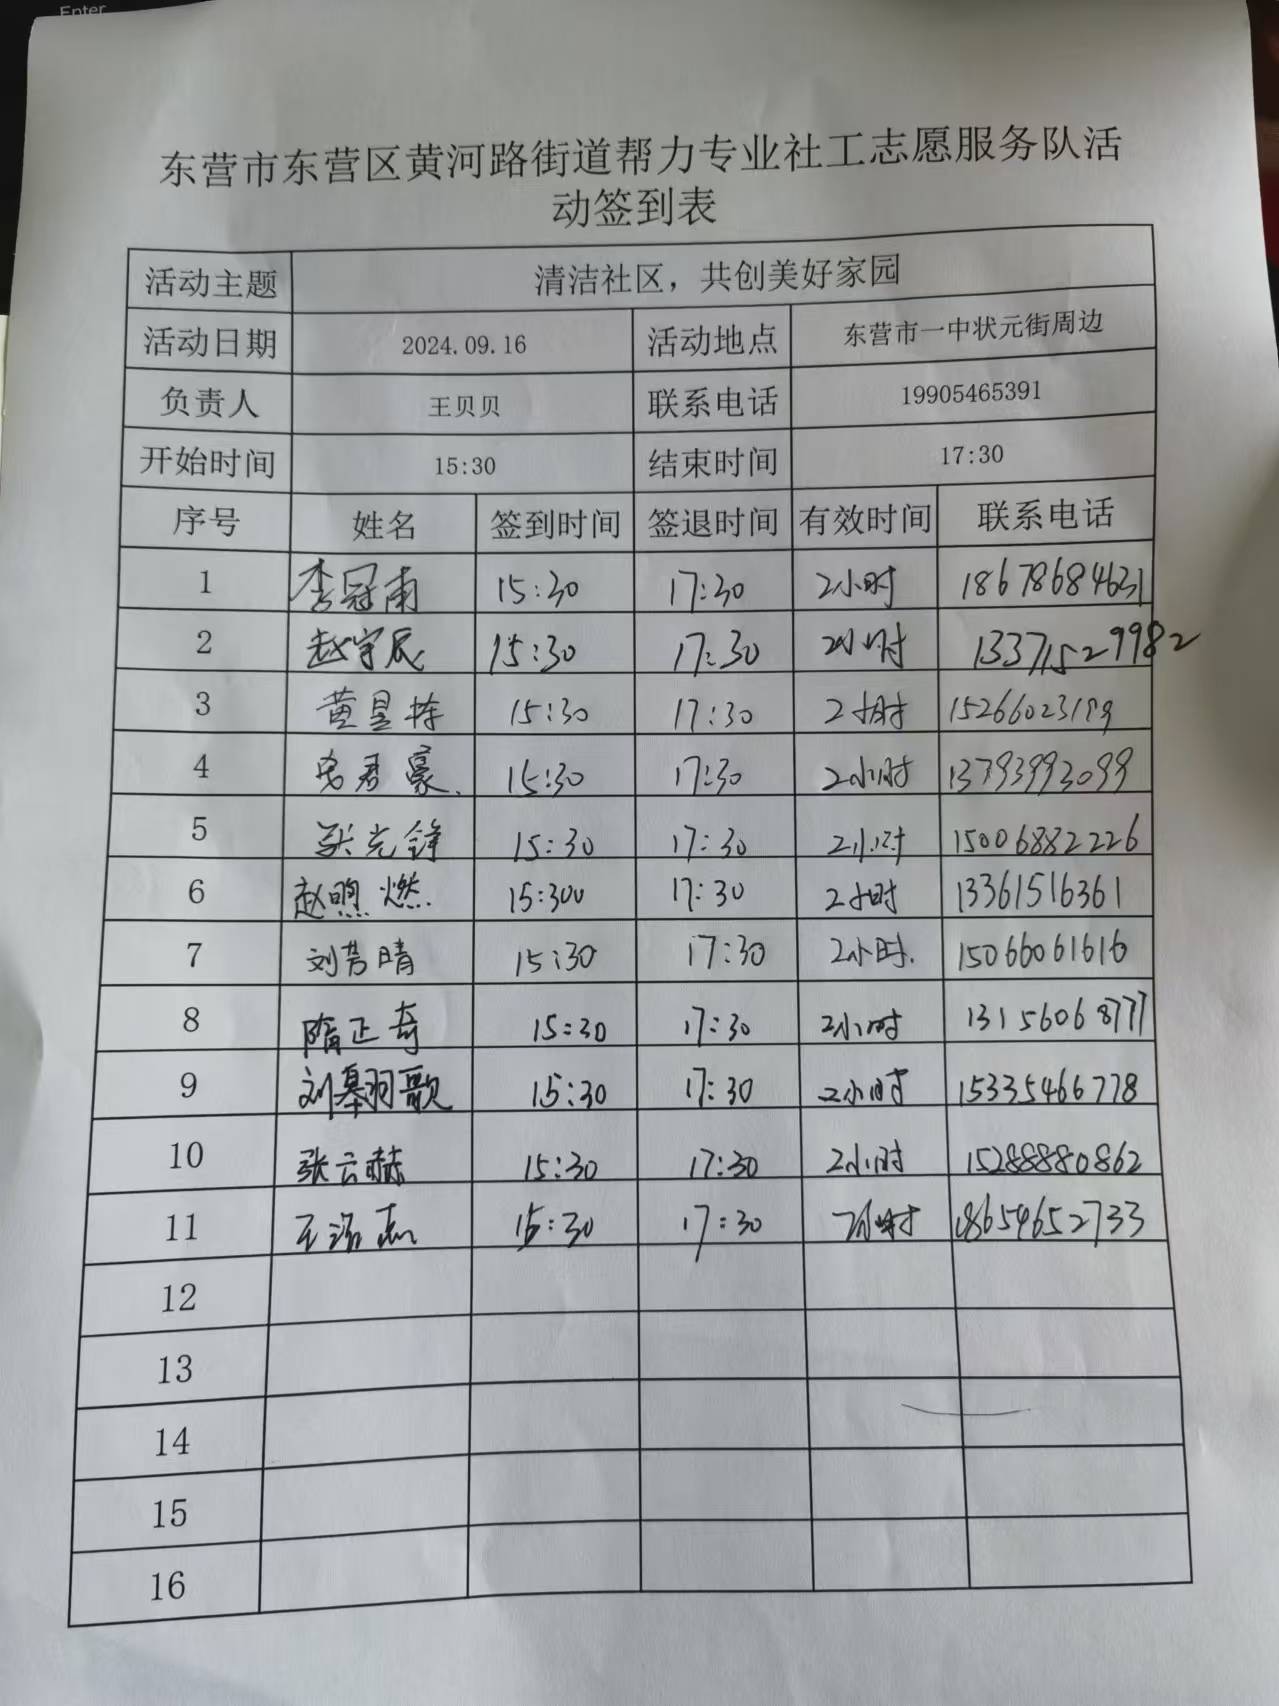 Enter
东营市东营区黄河路街道帮力专业社工志愿服务队活
动签到表
活动主题 清洁社区，共创美好家园
活动日期 2024.09.16 活动地点 东营市一中状元街周边
负责人 王贝贝 联系电话 19905465391
开始时间 15:30 结束时间 17:30
序号 姓名 签到时间 签退时间 有效时间 联系电话
1 李冠南 15:30 17:30 2小时 18678684631
2 赵宇辰 15:30 17:30 2小时 13371529982
3 黄昱栋 15:30 17:30 2小时
4 15:30 17:30 2小时 13793993099
5 张光锋 15:30 17:30 2小时 15006882226
6 赵煦燃 15:300 17:30 2小时 13361516361
7 15:30 17:30 2小时. 15066061616
8 隋正奇 15:30 17:30 2小时 13156068777
9 15:30 17:30 2小时 15335466778
10 张云赫 15:30 17:30 2小时 15288880862
11 15:30 17:30 2小时 18654652733
12
13
14
15
16